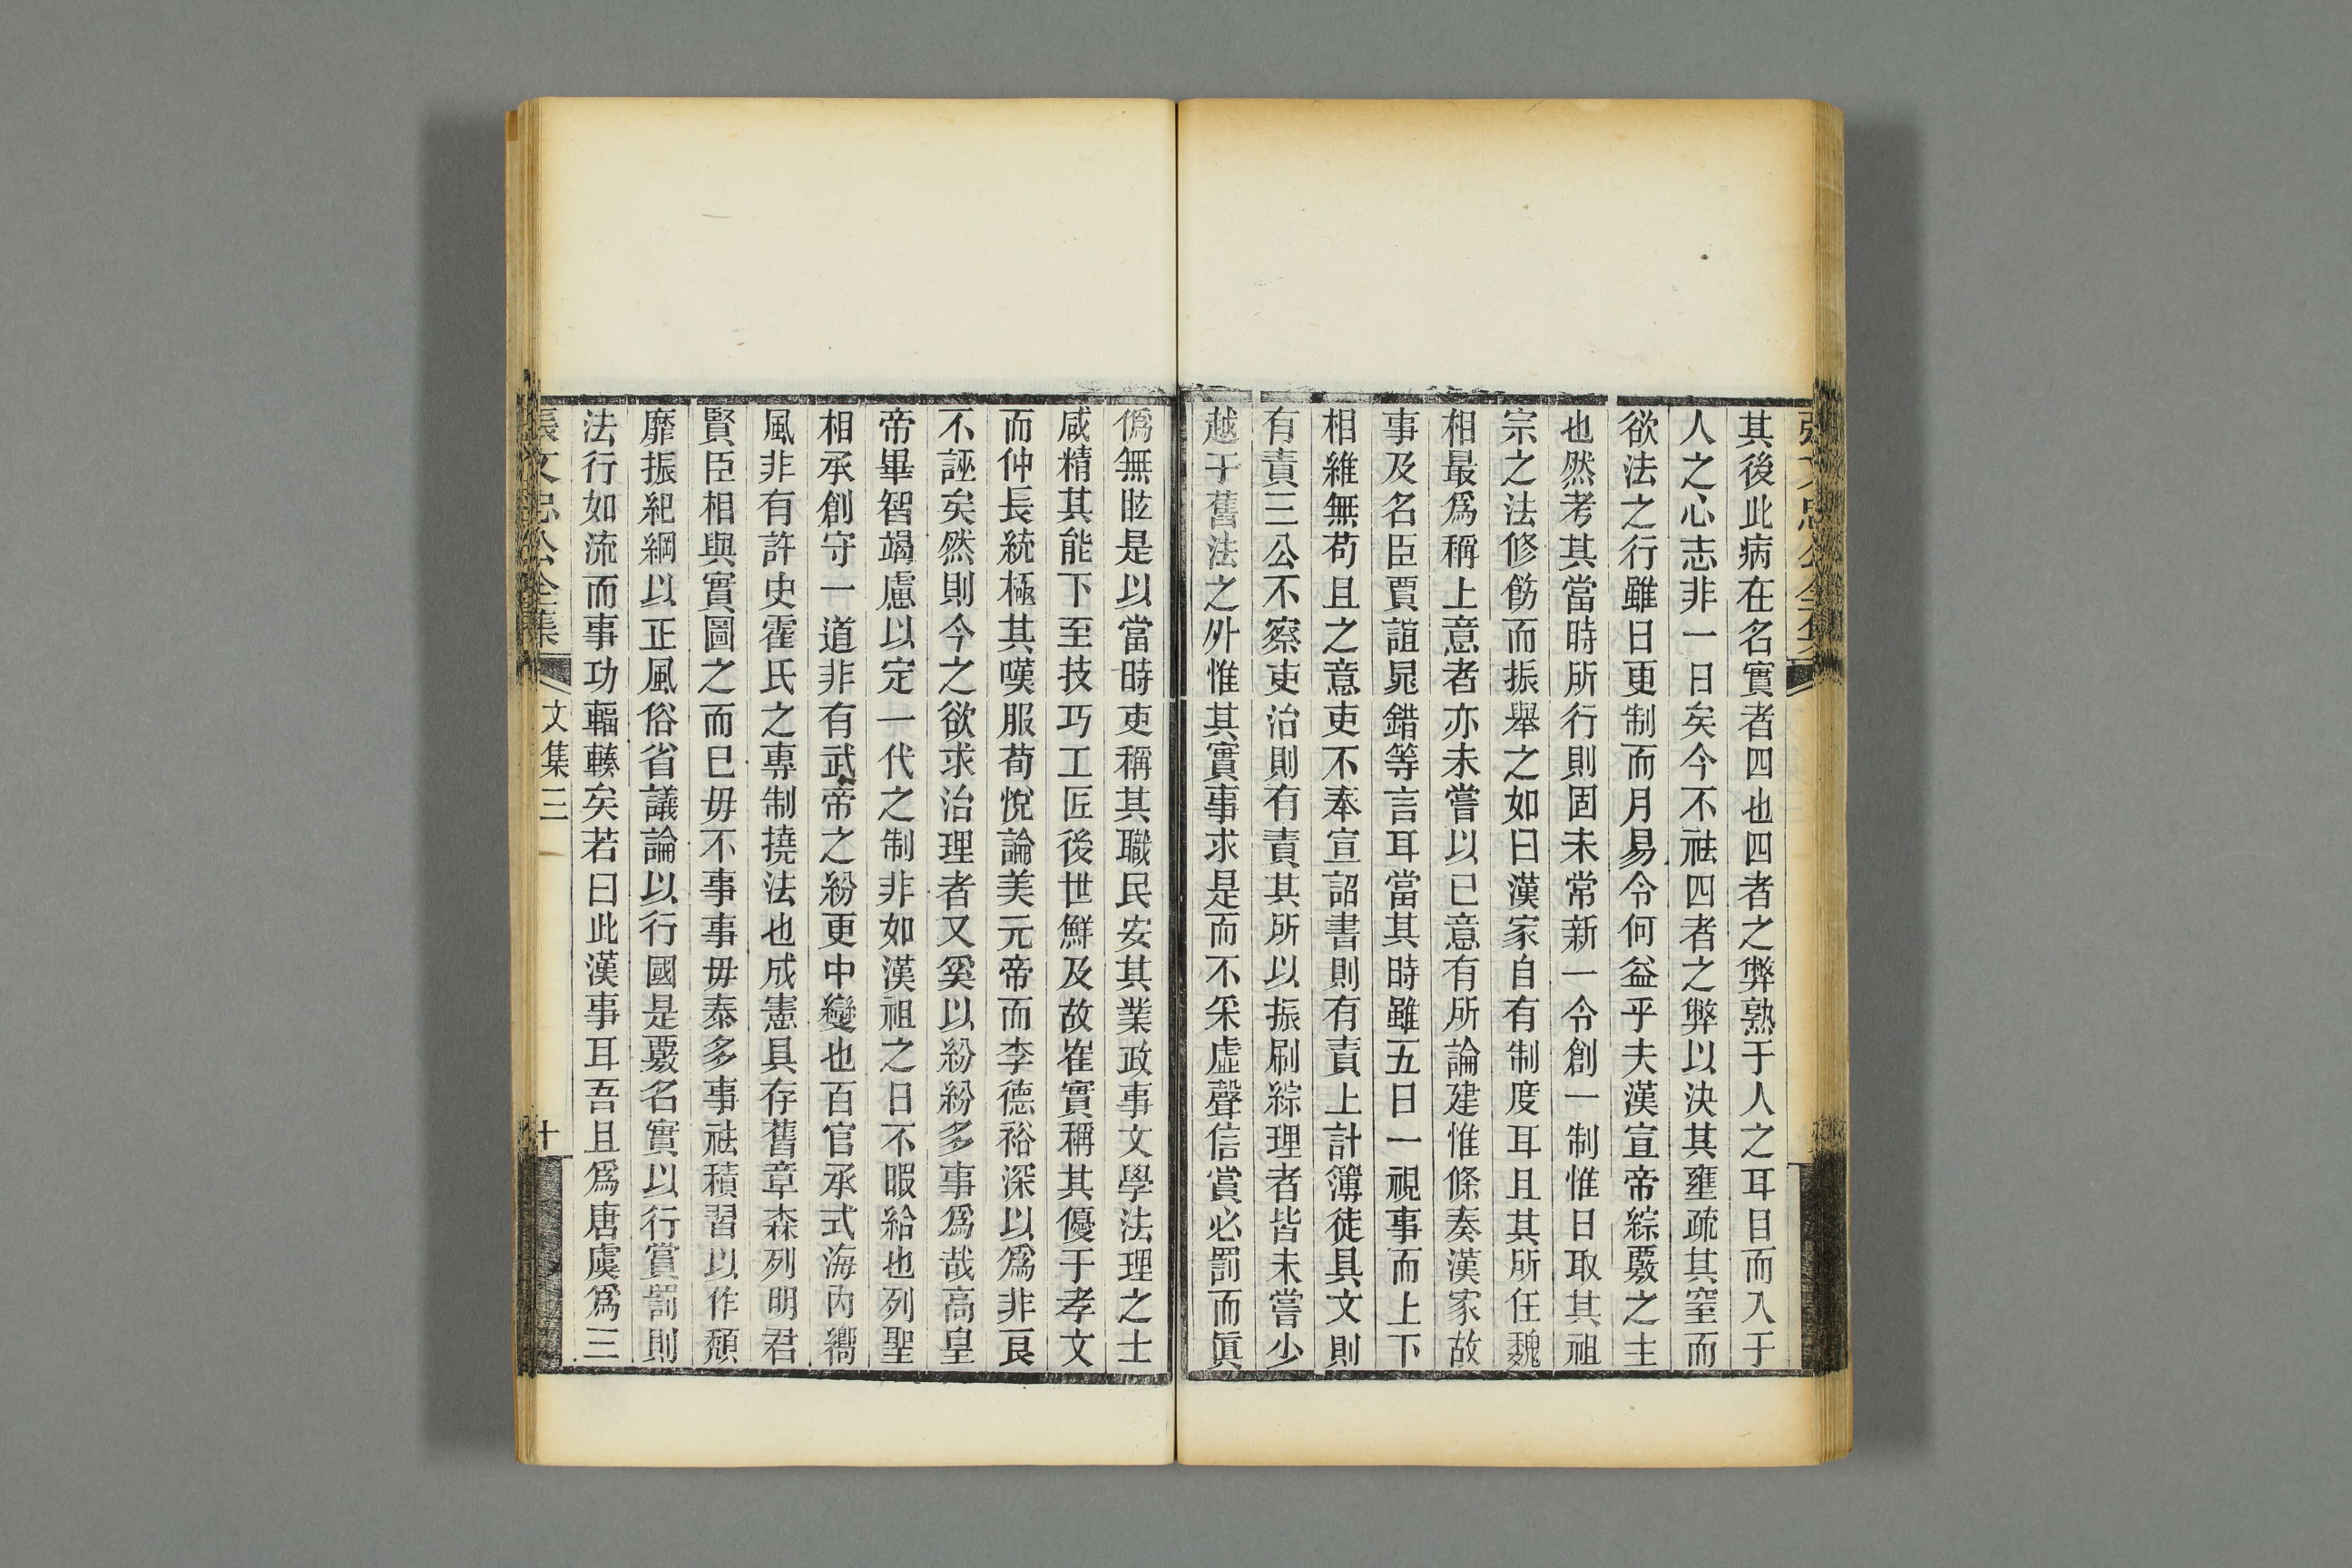 其後此病在名實者四也四者之弊熟于人之耳目而入于
人之心志非一日矣今不祛四者之弊以決其壅疏其窒而
欲法之行雖日更制而月易令何益乎夫漢宣帝綜覈之主
也然考其當時所行則固未常新一令創一制惟日取其祖
宗之法修飭而振舉之如曰漢家自有制度耳且其所任魏
相最爲稱上意者亦未嘗以已意有所論建惟條奏漢家故
事及名臣賈誼晁錯等言耳當其時雖五日一視事而上下
相維無苟且之意吏不奉宣詔書則有責上計簿徒具文則
有責三公不察吏治則有責其所以振刷綜理者皆未嘗少
越于舊法之外惟其實事求是而不采虛聲信賞必罰而眞
僞無眩是以當時吏稱其職民安其業政事文學法理之士
咸精其能下至技巧工匠後世鮮及故崔寔稱其優于孝文
而仲長統極其嘆服荀悅論美元帝而李德裕深以爲非良
不誣矣然則今之欲求治理者又奚以紛紛多事爲哉高皇
帝畢智竭慮以定一代之制非如漢祖之日不暇給也列聖
相承創守一道非有武帝之紛更中變也百官承式海內嚮
風非有許史霍氏之專制撓法也成憲具存舊章森列明君
賢臣相與實圖之而已毋不事事毋泰多事祛積習以作頹
靡振紀綱以正風俗省議論以行國是覈名實以行賞罰則
法行如流而事功輻輳矣若曰此漢事耳吾且爲唐虞爲三
張文忠公全集 文集三 十